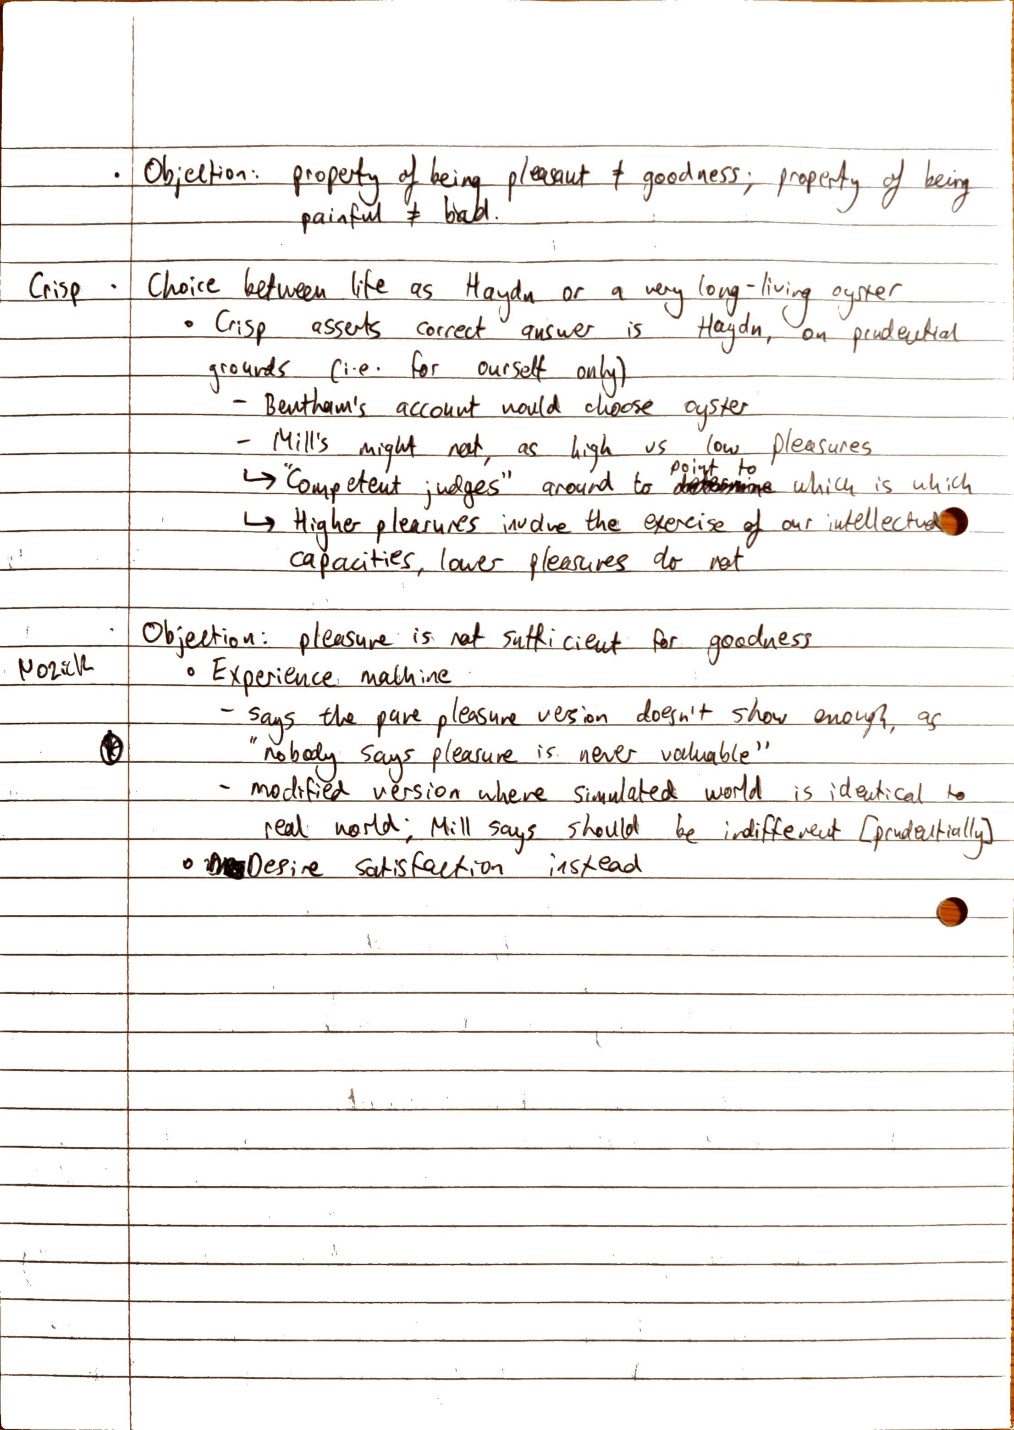 · Objection: property of being pleasant ≠ goodness; property of being
painful ≠ bad.
Crisp · Choice between life as Haydn or a very long-living oyster
• Crisp asserts correct answer is Haydn, on prudential
grounds (i.e. for ourself only)
- Bentham's account would choose oyster
- Mill's might not, as high vs low pleasures
↳ "Competent judges" around to point to which is which
↳ Higher pleasures involve the exercise of our intellectual
capacities, lower pleasures do not
· Objection: pleasure is not sufficient for goodness
Nozick • Experience machine
- says the pure pleasure version doesn't show enough, as
"nobody says pleasure is never valuable"
- modified version where simulated world is identical to
real world; Mill says should be indifferent [prudentially]
• Desire satisfaction instead